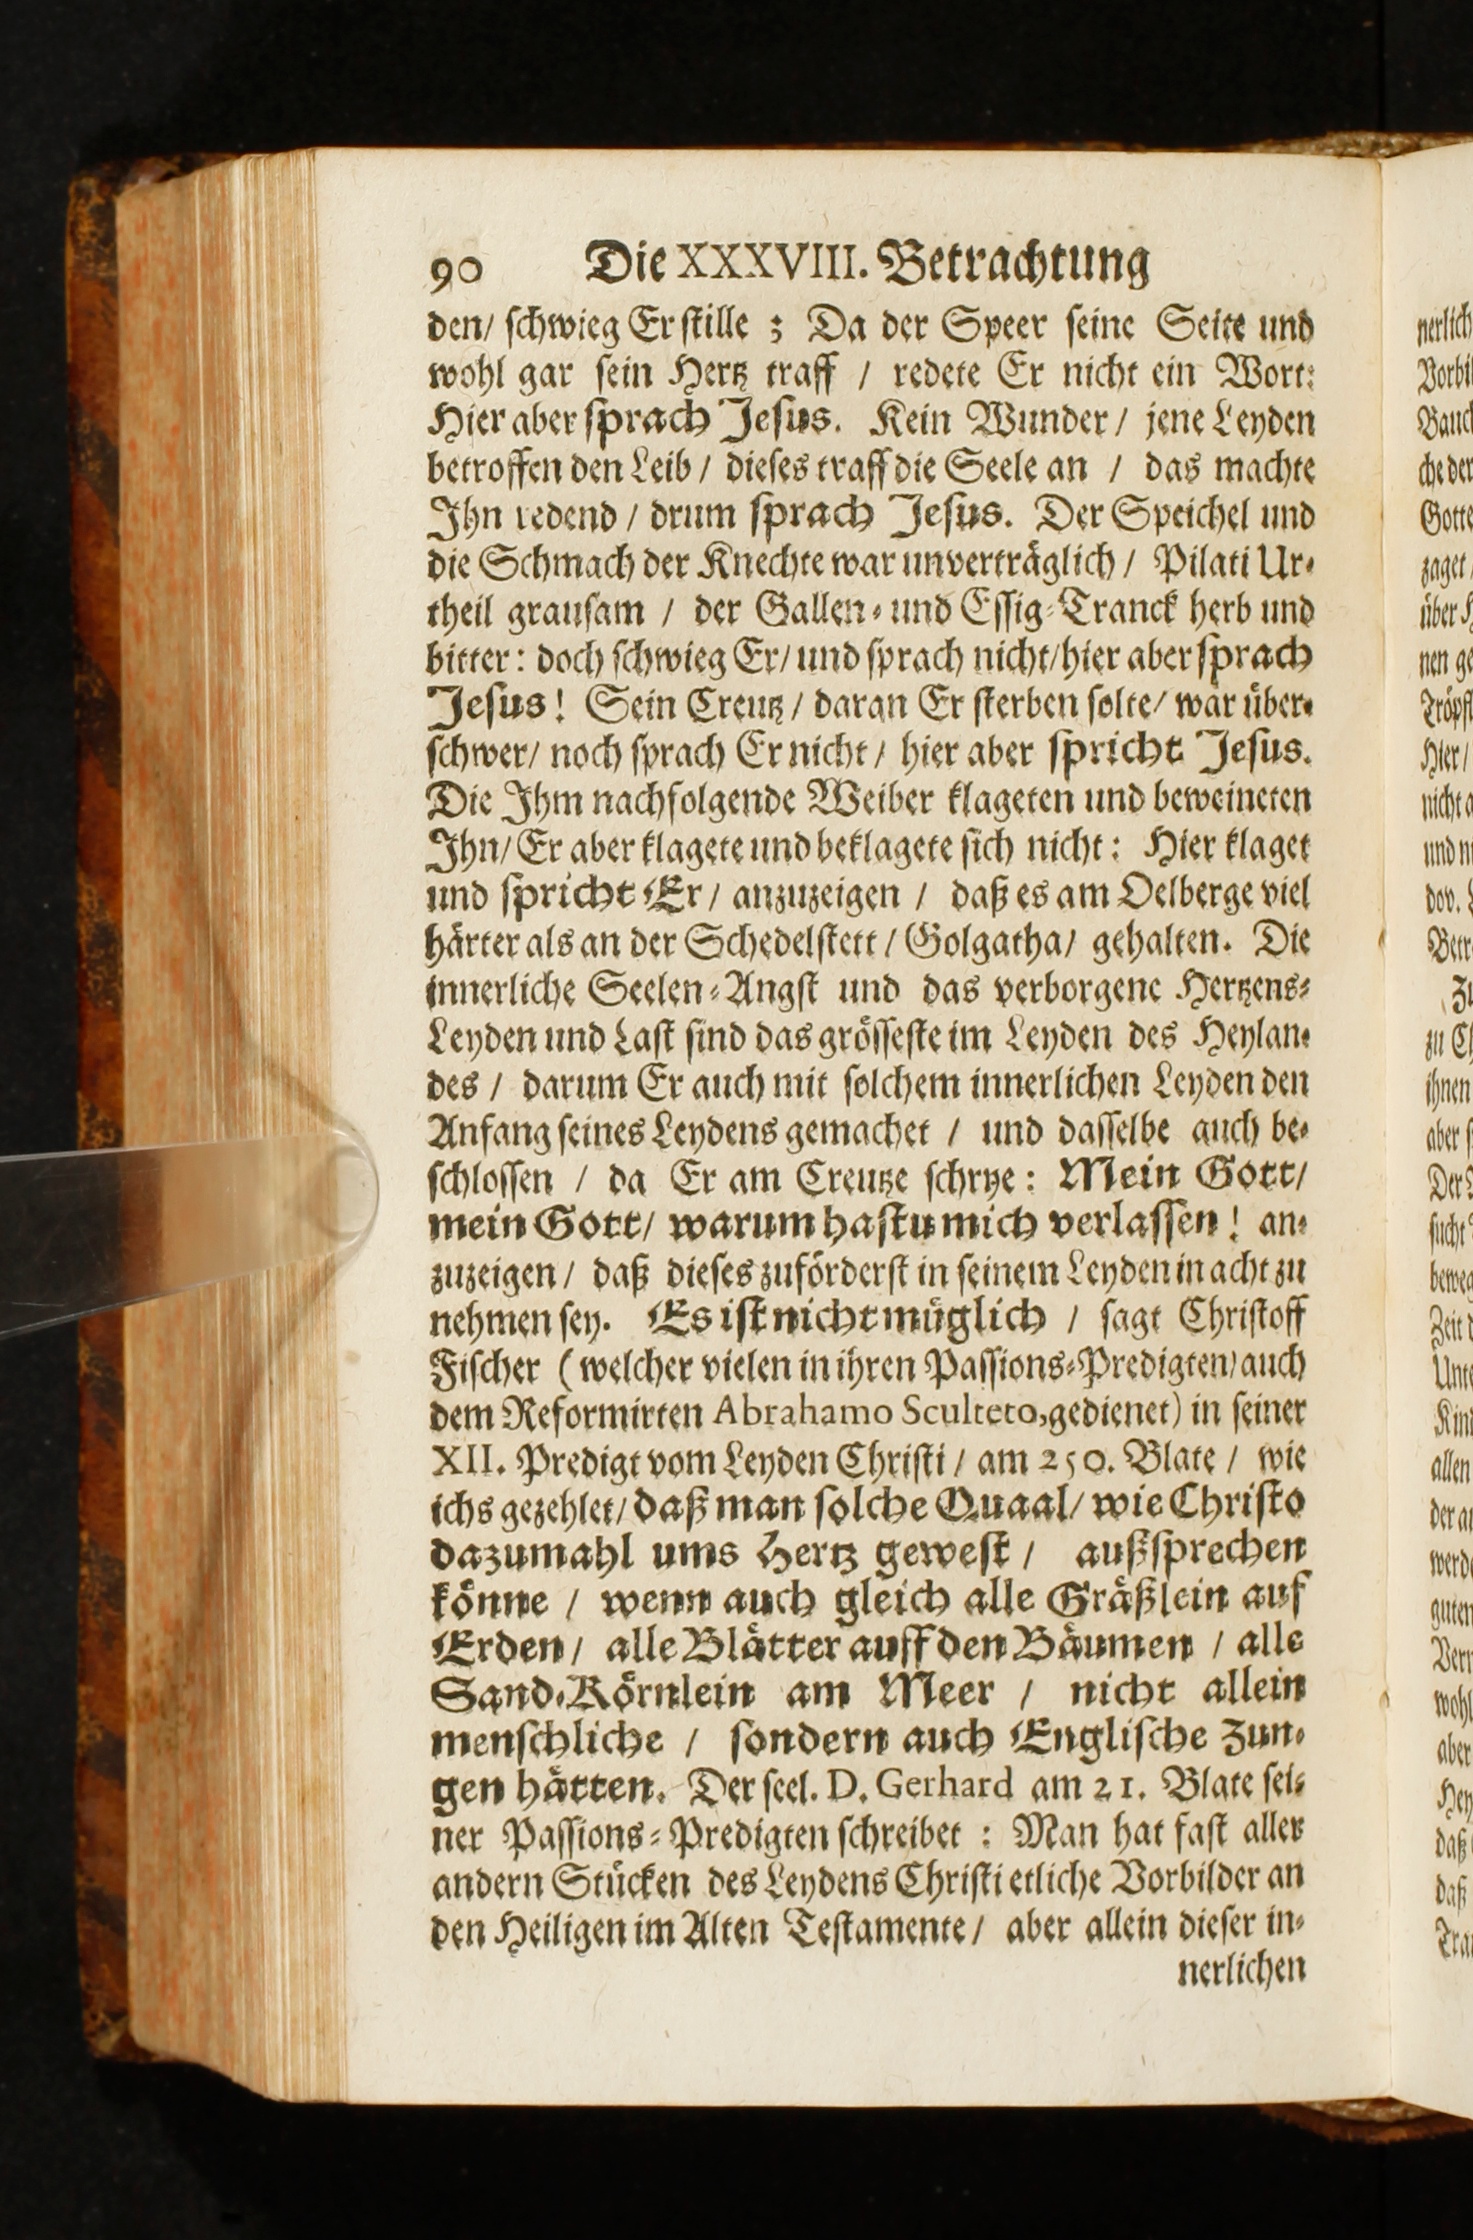 90 Die XXXVIII. Betrachtung
den/ schwieg Er stille ; Da der Speer seine Seite und
wohl gar sein Hertz traff / redete Er nicht ein Wort:
Hier aber sprach Jesus. Kein Wunder / jene Leyden
betroffen den Leib / dieses traff die Seele an / das machte
Ihn redend / drum sprach Jesus. Der Speichel und
die Schmach der Knechte war unverträglich / Pilati Ur-
theil grausam / der Gallen- und Essig-Tranck herb und
bitter: doch schwieg Er/ und sprach nicht/ hier aber sprach
Jesus! Sein Creutz / daran Er sterben solte/ war über-
schwer/ noch sprach Er nicht / hier aber spricht Jesus.
Die Ihm nachfolgende Weiber klageten und beweineten
Ihn/ Er aber klagete und beklagete sich nicht: Hier klaget
und spricht Er / anzuzeigen / daß es am Oelberge viel
härter als an der Schedelstett / Golgatha/ gehalten. Die
innerliche Seelen-Angst und das verborgene Hertzens-
Leyden und Last sind das grösseste im Leyden des Heylan-
des / darum Er auch mit solchem innerlichen Leyden den
Anfang seines Leydens gemachet / und dasselbe auch be-
schlossen / da Er am Creutze schrye: Mein Gott/
mein Gott/ warum hastu mich verlassen! an-
zuzeigen / daß dieses zuförderst in seinem Leyden in acht zu
nehmen sey. Es ist nicht müglich / sagt Christoff
Fischer (welcher vielen in ihren Passions-Predigten/ auch
dem Reformirten Abrahamo Sculteto, gedienet) in seiner
XII. Predigt vom Leyden Christi / am 250. Blate / wie
ichs gezehlet/ daß man solche Quaal/ wie Christo
dazumahl ums Hertz gewest / außsprechen
könne / wenn auch gleich alle Gräßlein auf
Erden / alle Blätter auff den Bäumen / alle
Sand-Körnlein am Meer / nicht allein
menschliche / sondern auch Englische Zun-
gen hätten. Der seel. D. Gerhard am 21. Blate sei-
ner Passions-Predigten schreibet : Man hat fast aller
andern Stücken des Leydens Christi etliche Vorbilder an
den Heiligen im Alten Testamente / aber allein dieser in-
nerlichen